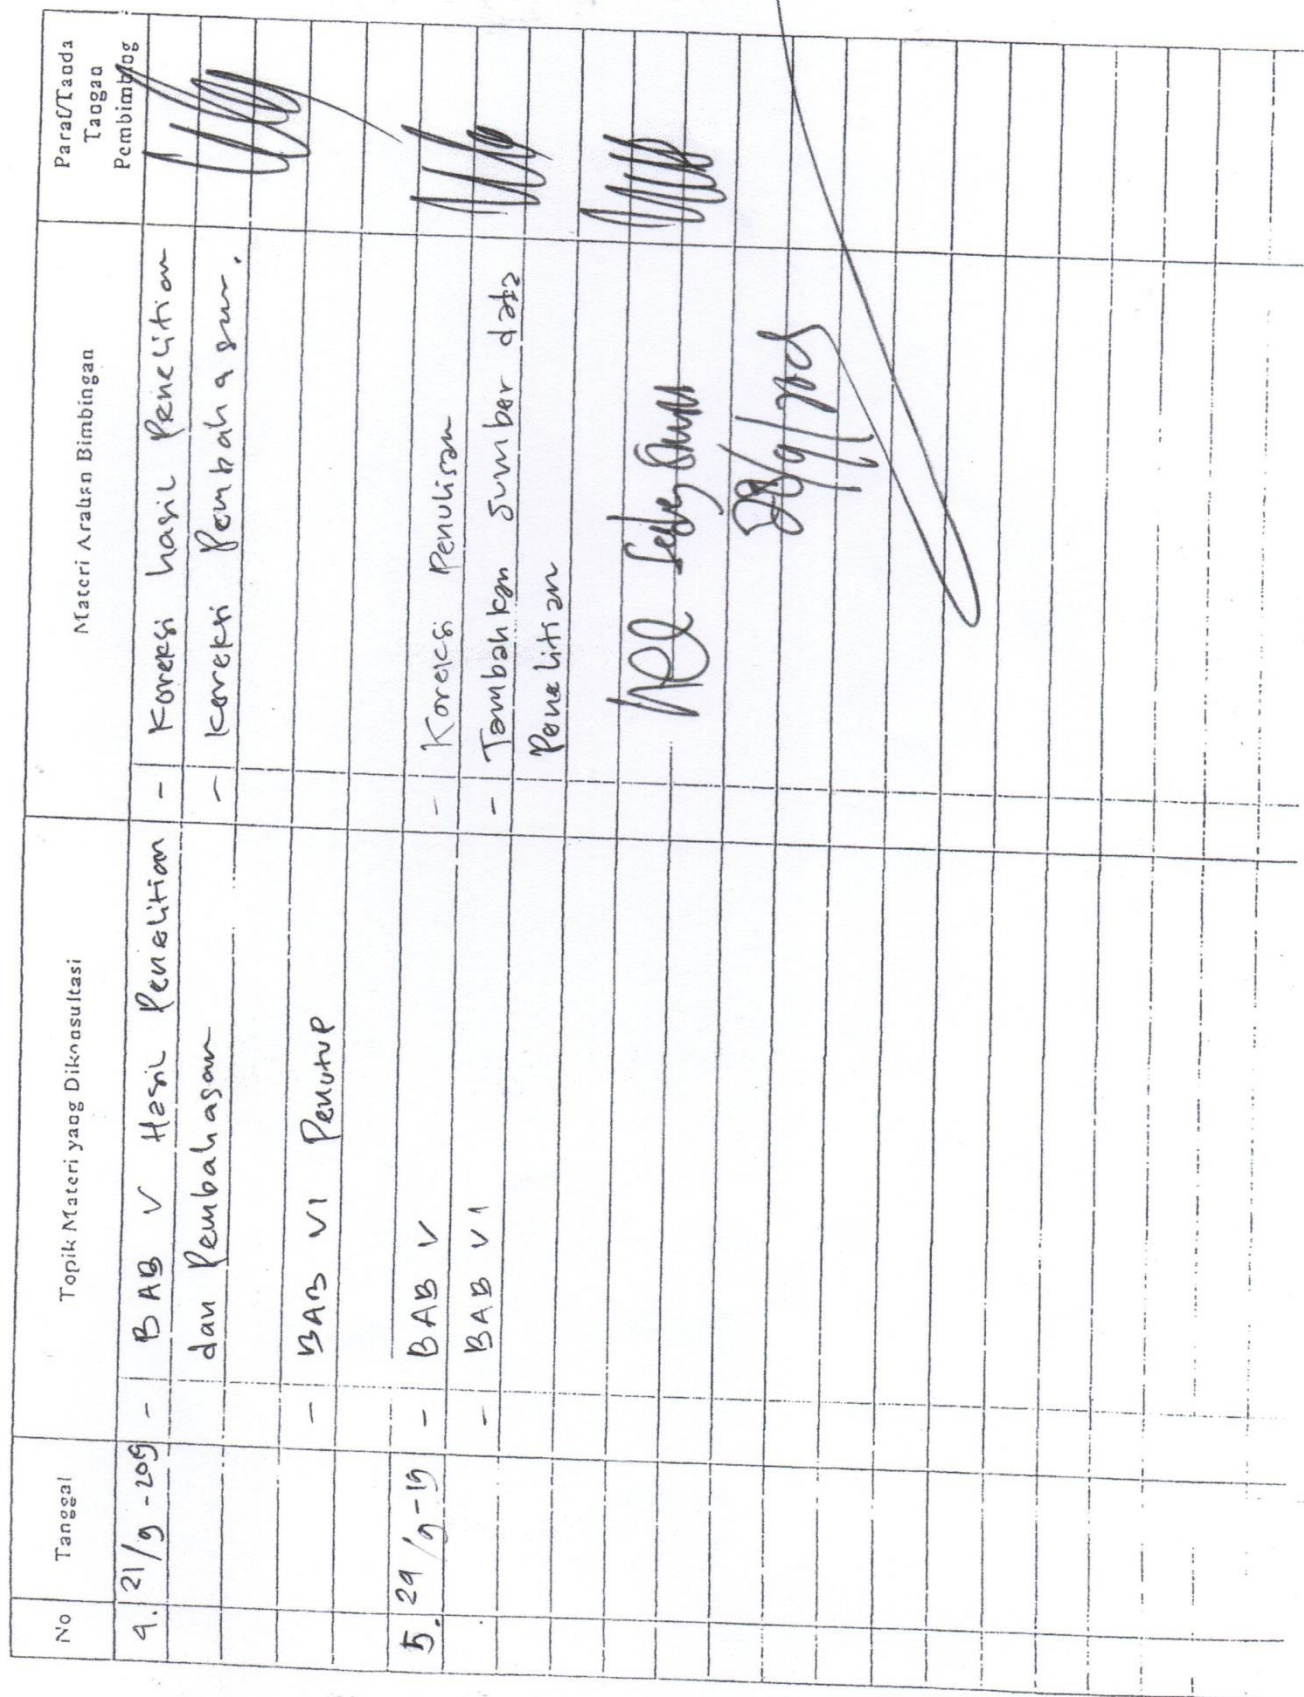 No Tanggal Topik Materi yang Dikonsultasi Materi Arahan Bimbingan Paraf/Tanda Tangan Pembimbing
4. 21/9 - - BAB V Hasil Penelitian - Koreksi hasil Penelitian
dan Pembahasan - Koreksi Pembahasan.
- BAB VI Penutup
5. /9-19 - BAB V - Koreksi Penulisan
- BAB VI - Tambahkan Sumber data
Penelitian